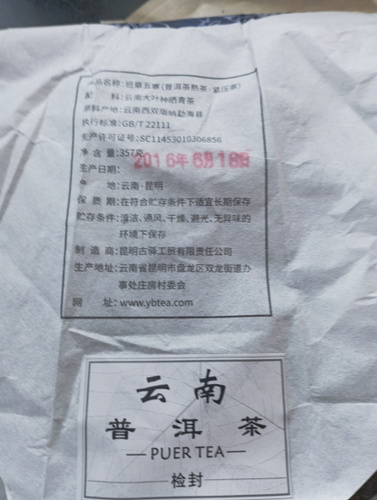 产品名称：班章五寨(普洱茶熟茶·紧压茶)
配 料：云南大叶种晒青茶
原料产地：云南西双版纳勐海县
执行标准：GB/T 22111
生产许可证号：SC11453010306856
净 含 量：357克
生产日期：2016年6月18日
产 地：云南·昆明
保 质 期：在符合贮存条件下适宜长期保存
贮存条件：清洁、通风、干燥、避光、无异味的
环境下保存
制 造 商：昆明古驿工贸有限责任公司
生产地址：云南省昆明市盘龙区双龙街道办
事处庄房村委会
网 址：www.ybtea.com
云南
普洱茶
PUER TEA
检封